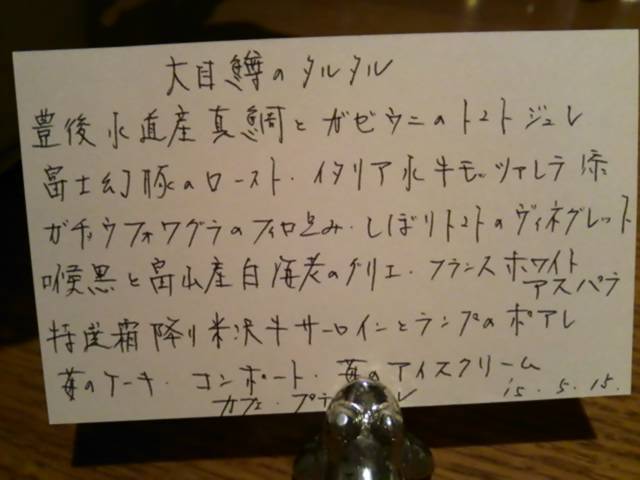 大目鱒のタルタル
豊後水道産真鯛とガゼウニのトマトジュレ
富士幻豚のロースト・イタリア水牛モッツァレラ添
ガチョウフォワグラのフィロ包み・しぼりトマトのヴィネグレット
喉黒と富山産白海老のグリエ・フランスホワイト
アスパラ
特選霜降り米沢牛サーロインとランプのポアレ
苺のケーキ・コンポート・苺のアイスクリーム
カフェ・プティ
15.5.15.